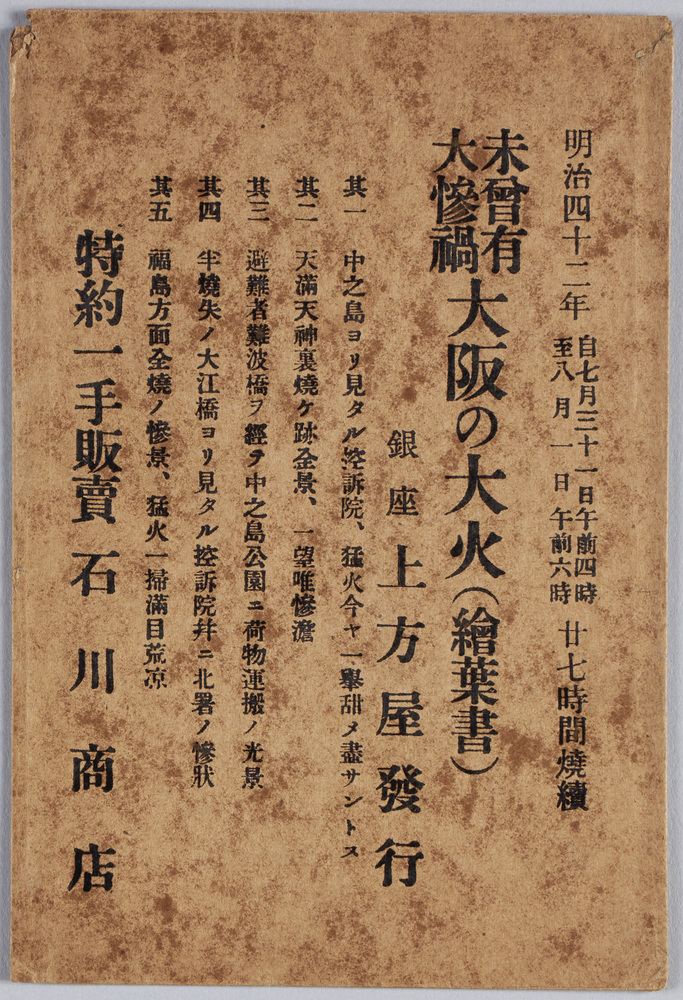 明治四十二年 自七月三十一日午前四時 至八月一日午前六時 廿七時間燒續
未曾有大慘禍 大阪の大火(繪葉書)
銀座 上方屋發行
其一 中之島ヨリ見タル控訴院、猛火今ヤ一擧甜メ盡サントス
其二 天滿天神裏燒ケ跡全景、一望唯慘澹
其三 避難者難波橋ヲ經テ中之島公園ニ荷物運搬ノ光景
其四 半燒失ノ大江橋ヨリ見タル控訴院幷ニ北署ノ慘狀
其五 福島方面全燒ノ慘景、猛火一掃滿目荒凉
特約一手販賣 石川商店